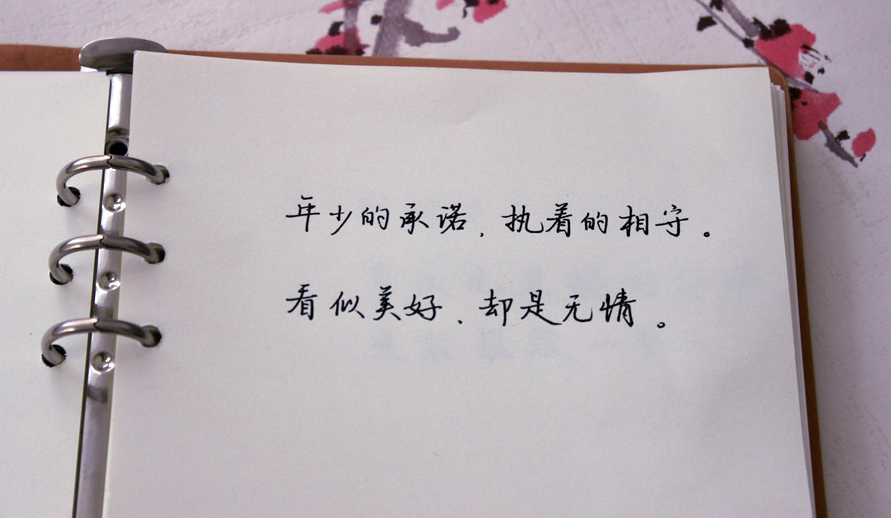 年少的承诺，执着的相守。
看似美好、却是无情。